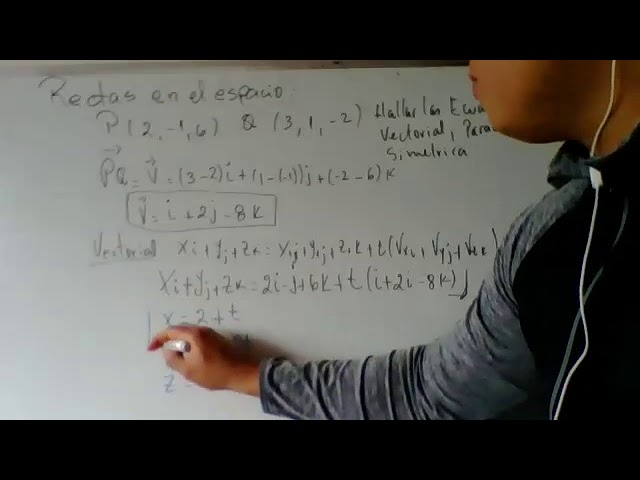 Rectas en el espacio:
P(2,-1,6) Q(3,1,-2) Hallar las
Vectorial,
Simetrica
PQ = V = (3-2)i + (1-(-1))j + (-2-6)k
V = i + 2j - 8k
Vectorial Xi+Yj+Zk = X1i+Y1j+Z1k + t(Vxi+Vyj+Vzk)
Xi+Yj+Zk = 2i-j+6k + t(i+2i-8k)
x = 2+t
z =